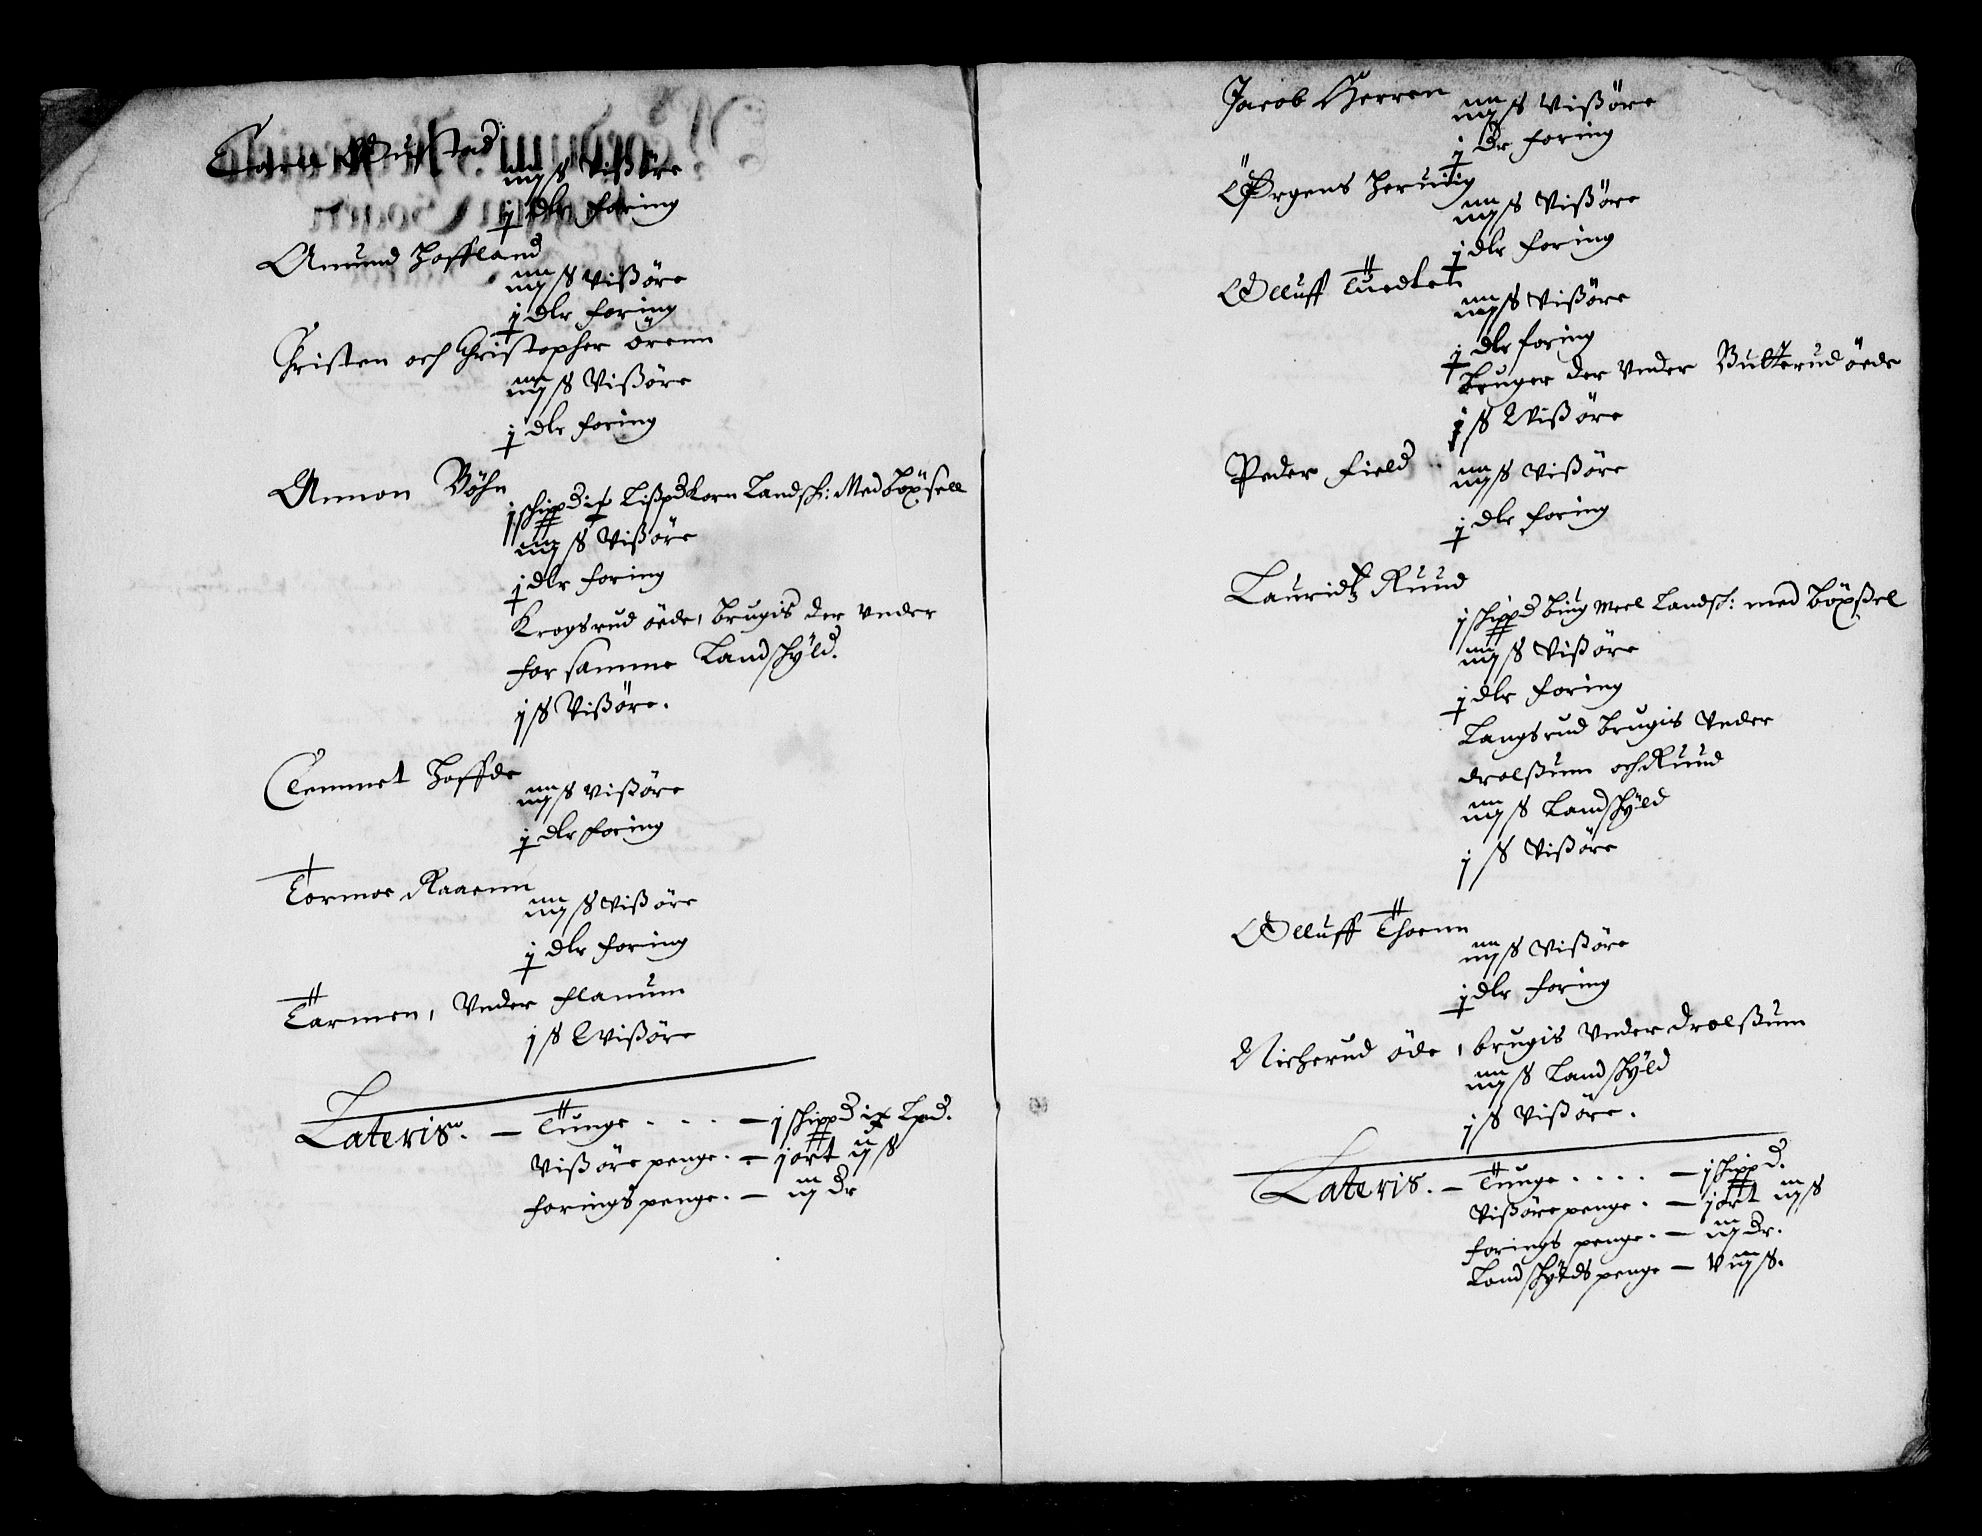 iiij ß Vißöre
j dlr foring
Amund Hoffland
iiij ß Vißöre
j dlr foring
Christen och Christopher örenn
iiij ß Vißöre
j dlr foring
Amon Böhn
j schippd ix Lißpd Korn Landsch: Med böxsell
iiij ß Vißöre
j dlr foring
Krogsrud öede, brugis der vnder
for samme Landschyld.
j ß Vißöre.
Clemmet Hoffde
iiij ß Vißöre
j dlr foring
Tormoe Raaenn
iiij ß Vißöre
j dlr foring
Tarmen, Vnder flanum
j ß Wißöre
Lateris. — Tunge . . . — j schippd ix Lpd.
Vißöre penge. — j ort ij ß
forings penge. — iij dr
Jacob Herren
iiij ß Vißöre
j dr foring
iiij ß Vißöre
j dlr foring
Olluff Tuedten
iiij ß Vißöre
j dlr foring
bruger der Vnder Butterud öede
j ß Wißöre
Peder Field
iiij ß Vißöre
j dlr foring
Lauridtz Ruud
j schippd biug Meel Landsch: med böxßel
iiij ß Vißöre
j dlr foring
Langsrud brugis Vnder
drolßum och Ruud
iiij ß Landschyld
j ß Vißöre
Olluff Thoenn
iiij ß Vißöre
j dlr foring
öde, brugis Vnder drolßum
iiij ß Landschyld
j ß Vißöre.
Lateris. — Tunge . . . . — j schippd.
Vißöre penge. — j ort iij ß
forings penge. — iij dr.
Landschylds penge — viij ß.